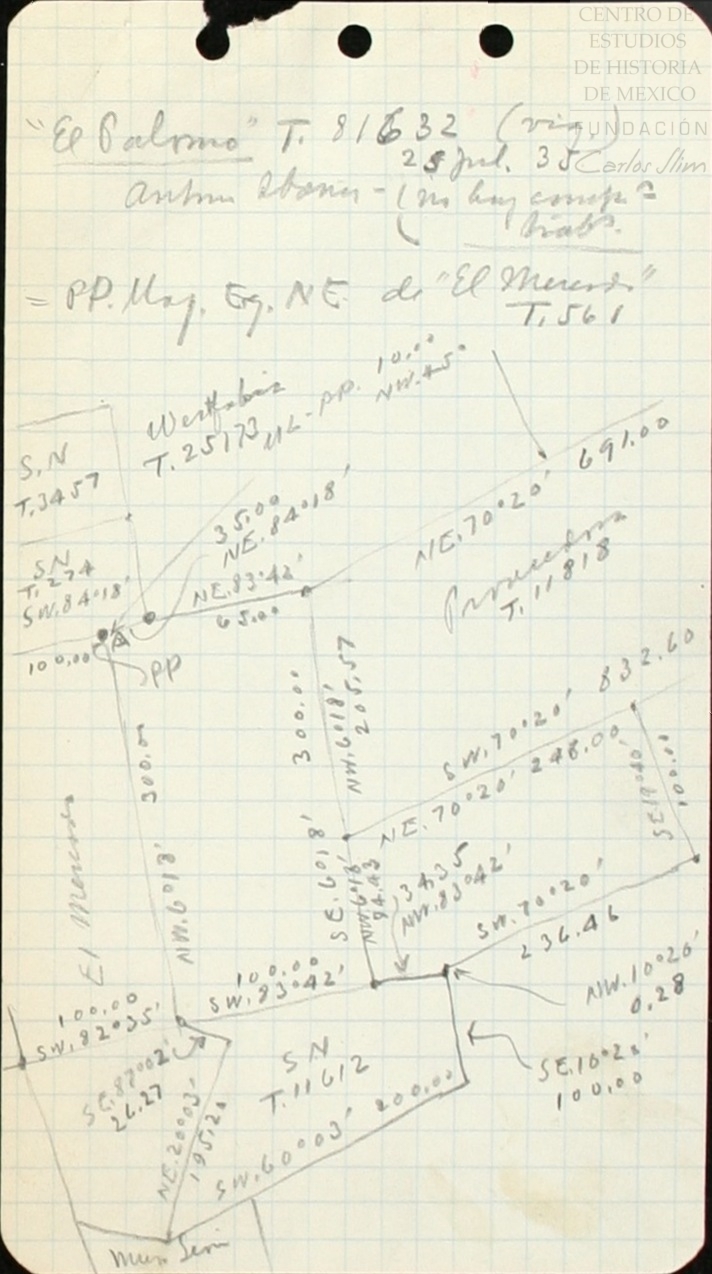 CENTRO DE
ESTUDIOS
DE HISTORIA
DE MÉXICO
FUNDACIÓN
Carlos Slim
"El Palomo" T. 81632 (vig.)
25 Jul. 35
(no hay
trab.
= PP. Maj. Eg. NE. de "El
T. 561
T. 25173
ML - PP. 10.00
NW. 45°
S.N
T. 3457
35.00
NE. 84°18'
NE. 70°20' 691.00
SN
T. 274
SW. 84°18'
NE. 83°42'
65.00
T. 11818
100.00
PP
300.00
NW. 6°18'
300.00
SE. 6°18'
NW. 6°18'
205.57
SW. 70°20' 832.60
NE. 70°20' 248.00
SE. 19°40'
100.00
El
NW. 6°18'
94.43
34.35
NW. 83°42'
SW. 70°20'
236.46
100.00
SW. 83°42'
100.00
SW. 82°35'
NW. 10°20'
0.28
SE. 87°02'
26.27
SN
T. 11612
SE. 10°20'
100.00
NE. 20°03'
195.20
SW. 60°03' 200.00